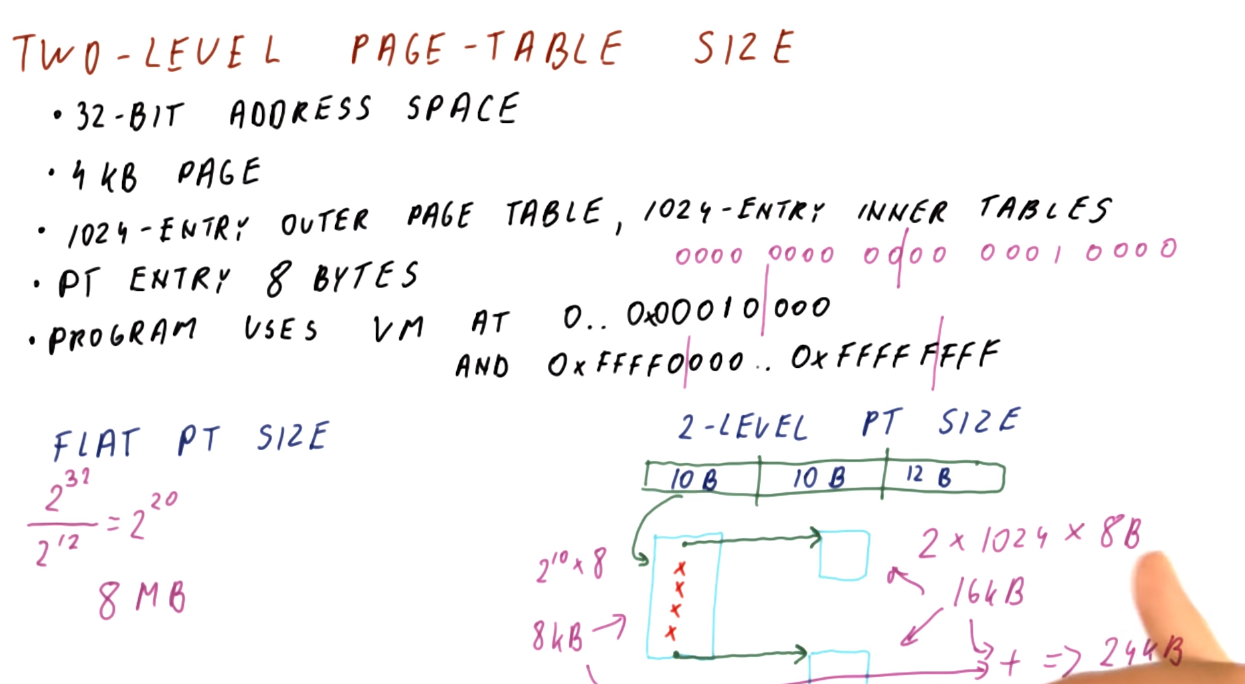 TWO-LEVEL PAGE-TABLE SIZE
• 32-BIT ADDRESS SPACE
• 4 KB PAGE
• 1024-ENTRY OUTER PAGE TABLE, 1024-ENTRY INNER TABLES
0000 0000 0000 0001 0000
• PT ENTRY 8 BYTES
• PROGRAM USES VM AT 0.. 0x00010000
AND 0xFFFF0000.. 0xFFFFFFFF
FLAT PT SIZE
2^32 / 2^12 = 2^20
8 MB
2-LEVEL PT SIZE
10 B 10 B 12 B
2^10 x 8
x
x
x
x
2 x 1024 x 8B
16kB
8kB
+ => 24kB